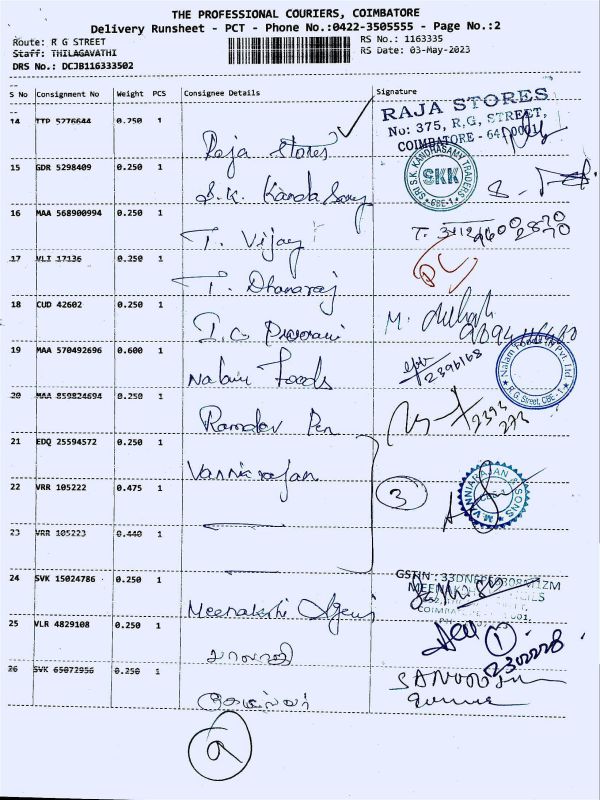 THE PROFESSIONAL COURIERS, COIMBATORE
Delivery Runsheet - PCT - Phone No.:0422-3505555 - Page No.:2
Route: R G STREET
RS No.: 1163335
Staff: THILAGAVATHI
RS Date: 03-May-2023
DRS No.: DCJB116333502
S No Consignment No Weight PCS Consignee Details Signature
14 TTP 5276644 0.250 1 Raja Stores
RAJA STORES
No: 375, R.G. STREET,
COIMBATORE - 641 001
15 GDR 5298409 0.250 1 S.K. Kandasamy
SRI S.K. KANDASAMY TRADERS
SKK
CBE-1
16 MAA 568900994 0.250 1 T. Vijay
17 VLI 17136 0.250 1 T. Dhanaraj
18 CUD 42602 0.250 1
M.
19 MAA 570492696 0.600 1 Nalam Foods
2396168
Nalam Foods Pvt. Ltd
R G Street, CBE - 1
20 MAA 859824694 0.250 1 Ramdev Pen
2393
273
21 EDQ 25594572 0.250 1 Vanniarajan
22 VRR 105222 0.475 1
3
M. VANNIARAJAN & SONS
23 VRR 105223 0.440 1
24 SVK 15024786 0.250 1 Meenakshi
GSTIN :
25 VLR 4829108 0.250 1
1
2302228
26 SVK 65072956 0.250 1
9